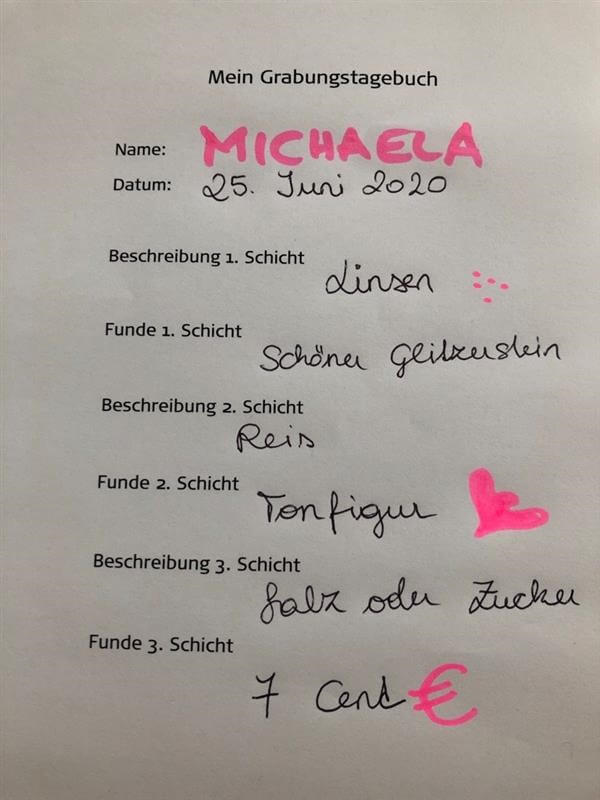 Mein Grabungstagebuch
Name: MICHAELA
Datum: 25. Juni 2020
Beschreibung 1. Schicht
Linsen
Funde 1. Schicht
Schöner Glitzerstein
Beschreibung 2. Schicht
Reis
Funde 2. Schicht
Tonfigur
Beschreibung 3. Schicht
Salz oder Zucker
Funde 3. Schicht
7 Cent €